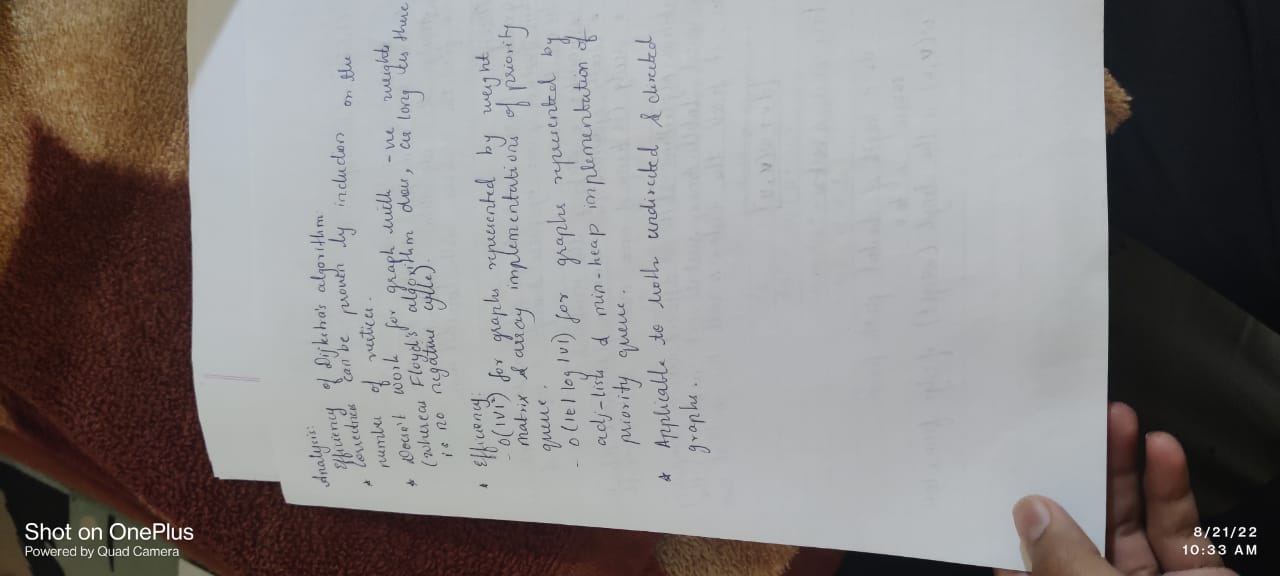 Analysis:
Efficiency of Dijkstra's algorithm
* Correctness can be proven by induction on the
number of vertices.
* Doesn't work for graph with -ve weights
(whereas Floyd's algorithm does, as long as there
is no negative cycle).
* Efficiency:
- O(|V|²) for graphs represented by weight
matrix & array implementations of priority
queue.
- O(|E| log |V|) for graphs represented by
adj-lists & min-heap implementation of
priority queue.
* Applicable to both undirected & directed
graphs.
Shot on OnePlus
Powered by Quad Camera
8/21/22
10:33 AM